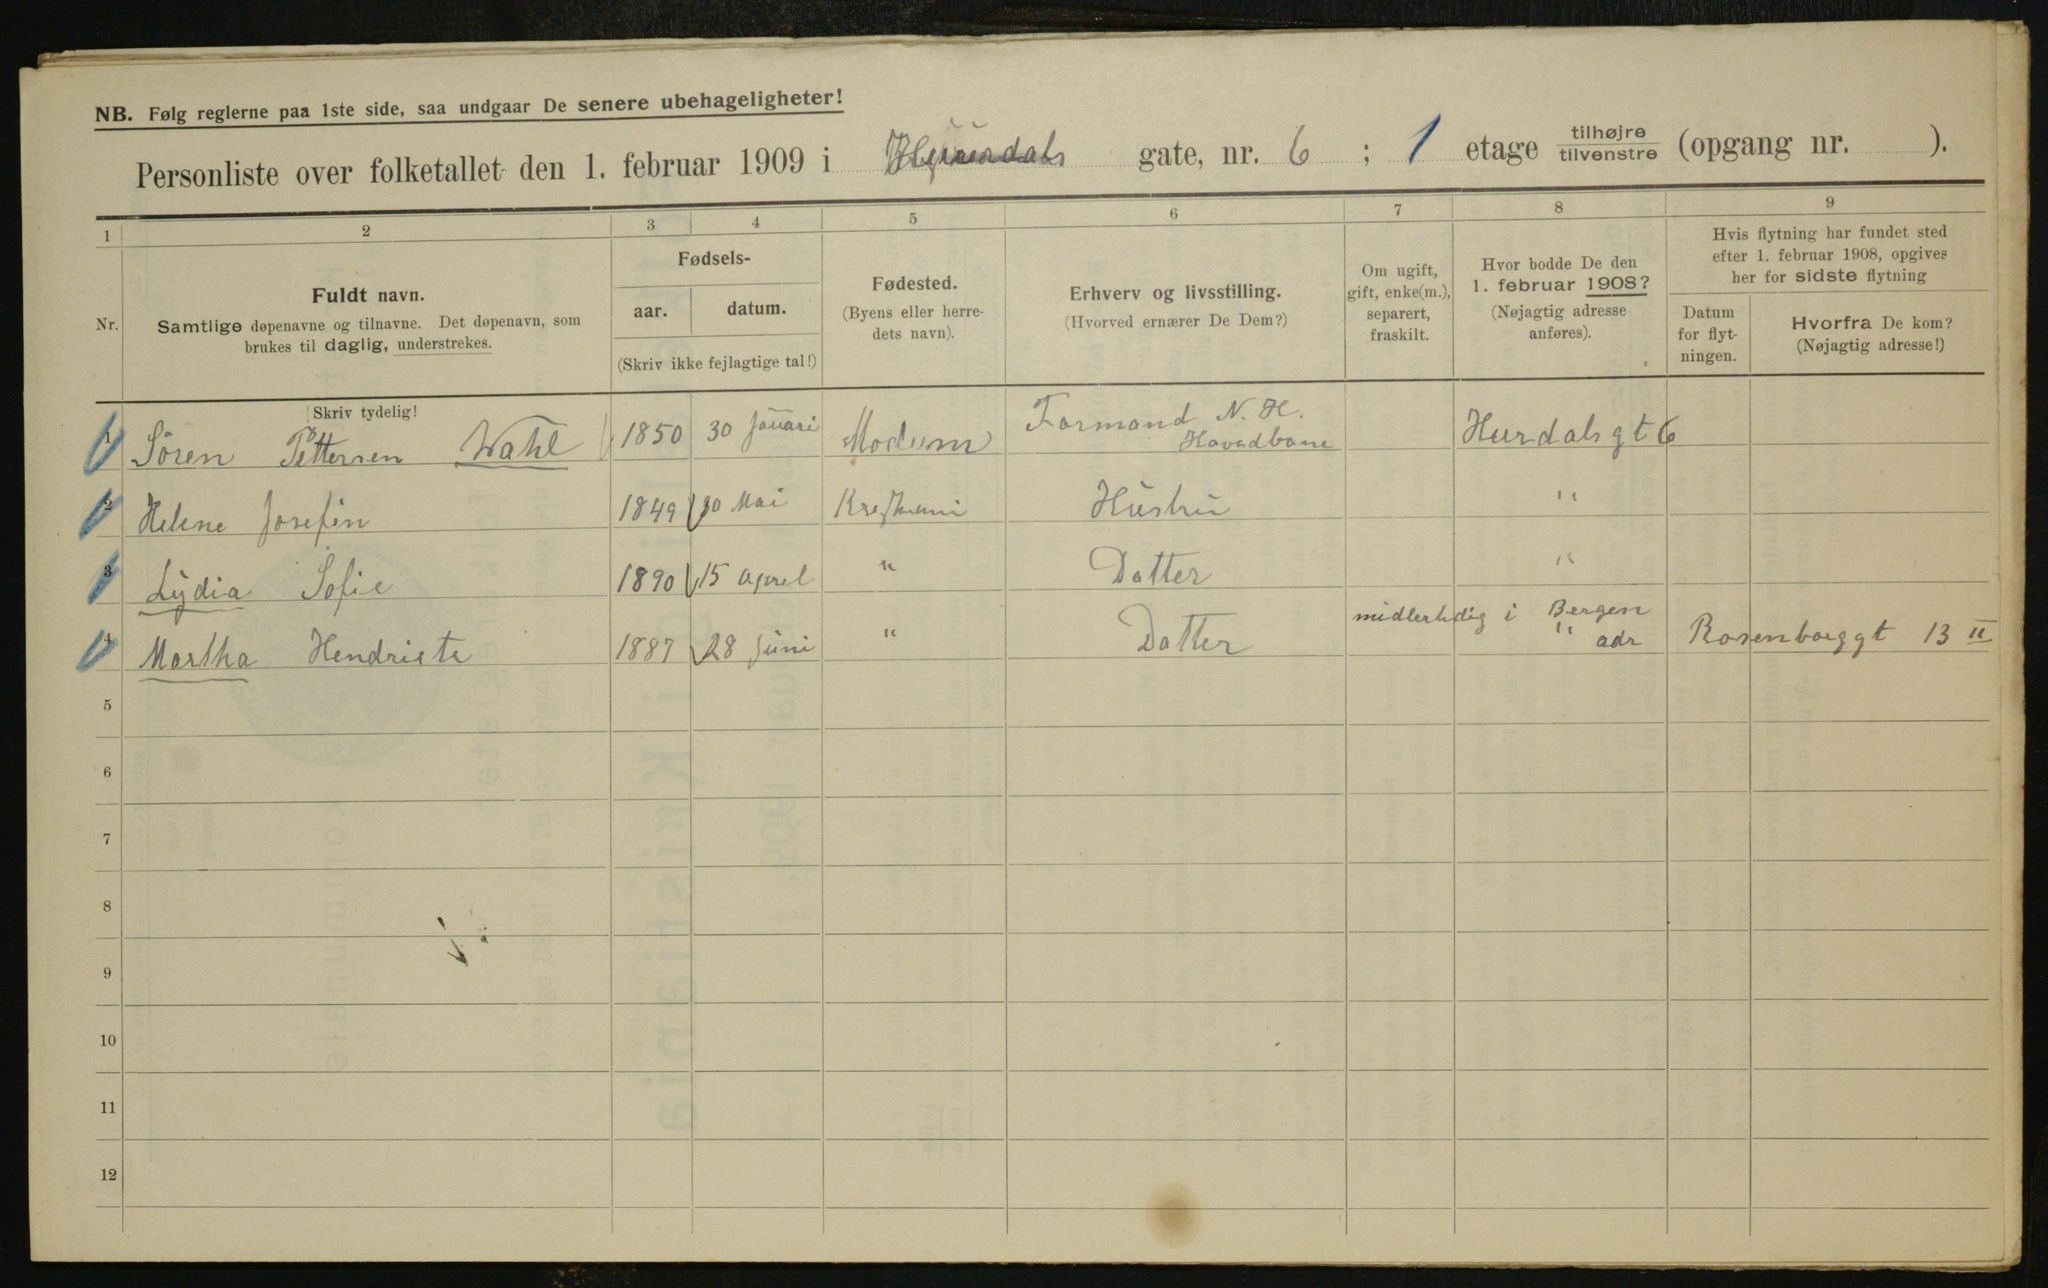 NB. Følg reglerne paa 1ste side, saa undgaar De senere ubehageligheter!
Personliste over folketallet den 1. februar 1909 i Hurdals gate, nr. 6 ; 1 etage tilhøjre / tilvenstre (opgang nr. ).
1 2 3 4 5 6 7 8 9
Nr.
Fuldt navn.
Samtlige døpenavne og tilnavne. Det døpenavn, som
brukes til daglig, understrekes.
Fødsels-
aar. datum.
(Skriv ikke fejlagtige tal!)
Fødested.
(Byens eller herre-
dets navn).
Erhverv og livsstilling.
(Hvorved ernærer De Dem?)
Om ugift,
gift, enke(m.),
separert,
fraskilt.
Hvor bodde De den
1. februar 1908?
(Nøjagtig adresse
anføres).
Hvis flytning har fundet sted
efter 1. februar 1908, opgives
her for sidste flytning
Datum
for flyt-
ningen.
Hvorfra De kom?
(Nøjagtig adresse!)
Skriv tydelig!
1 Sören Pettersen Wahl 1850 30 Januari Modum Formand N. H. Hovedbane Hurdalsgt 6
2 Helene Josefin 1849 30 Mai Hustru "
3 Lydia Sofie 1890 15 April " Datter "
4 Martha Hendriete 1887 28 Juni " Datter midlertidig i Bergen " adr Rosenborggt 13 II
5
6
7
8
9
10
11
12